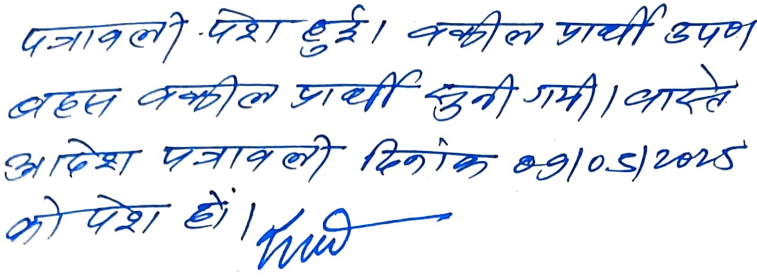 पत्रावली पेश हुई। वकील प्रार्थी उप०
बहस वकील प्रार्थी सुनी गयी। वास्ते
आदेश पत्रावली दिनांक 09/05/2025
को पेश हों।